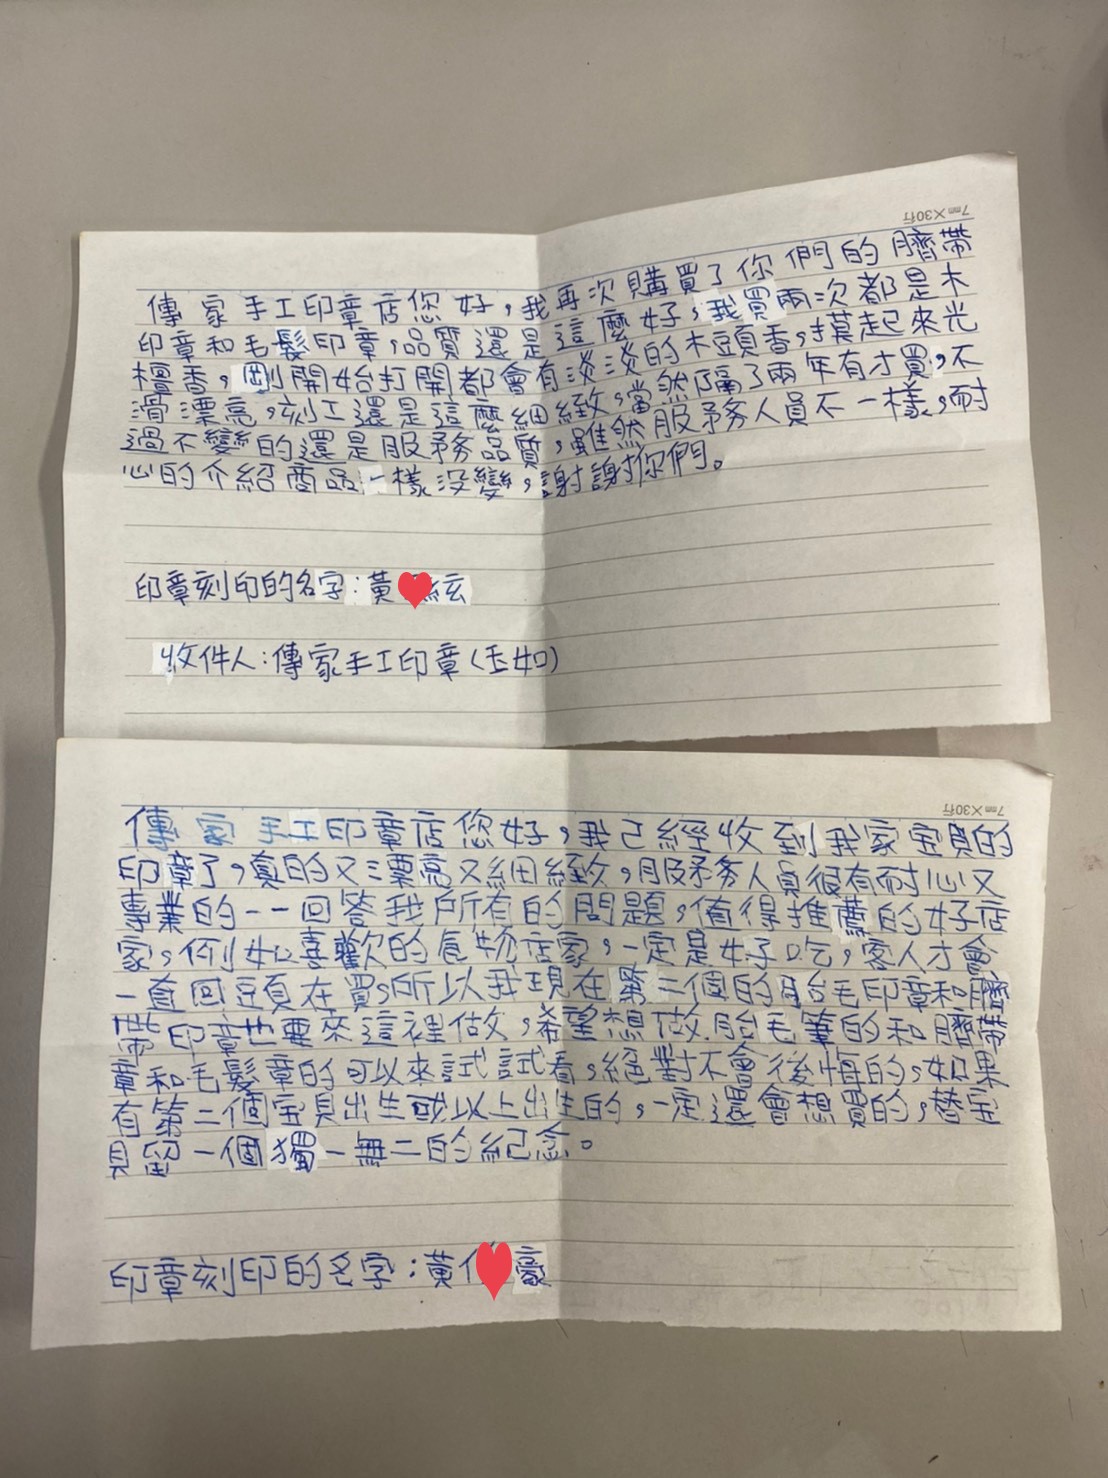 7mm×30行
傳家手工印章店您好，我再次購買了你們的臍帶
印章和毛髮印章，品質還是這麼好，我買兩次都是木
檀香，剛開始打開都會有淡淡的木頭香，摸起來光
滑漂亮，刻工還是這麼細緻，當然隔了兩年有才買，不
過不變的還是服務品質，雖然服務人員不一樣，耐
心的介紹商品一樣沒變，謝謝你們。
印章刻印的名字：黃 絃
收件人：傳家手工印章（玉如）
7mm×30行
傳家手工印章店您好，我已經收到我家宝貝的
印章了，真的又漂亮又細緻，服務人員很有耐心又
專業的一一回答我所有的問題，值得推薦的好店
家，例如喜歡的食物店家，一定是好吃，客人才會
一直回頭在買，所以我現在第二個的胎毛印章和臍
帶印章也要來這裡做，希望想做胎毛筆的和臍帶
章和毛髮章的可以來試試看，絕對不會後悔的，如果
有第二個宝貝出生或以上出生的，一定還會想買的，替宝
貝留一個獨一無二的紀念。
印章刻印的名字：黃 豪